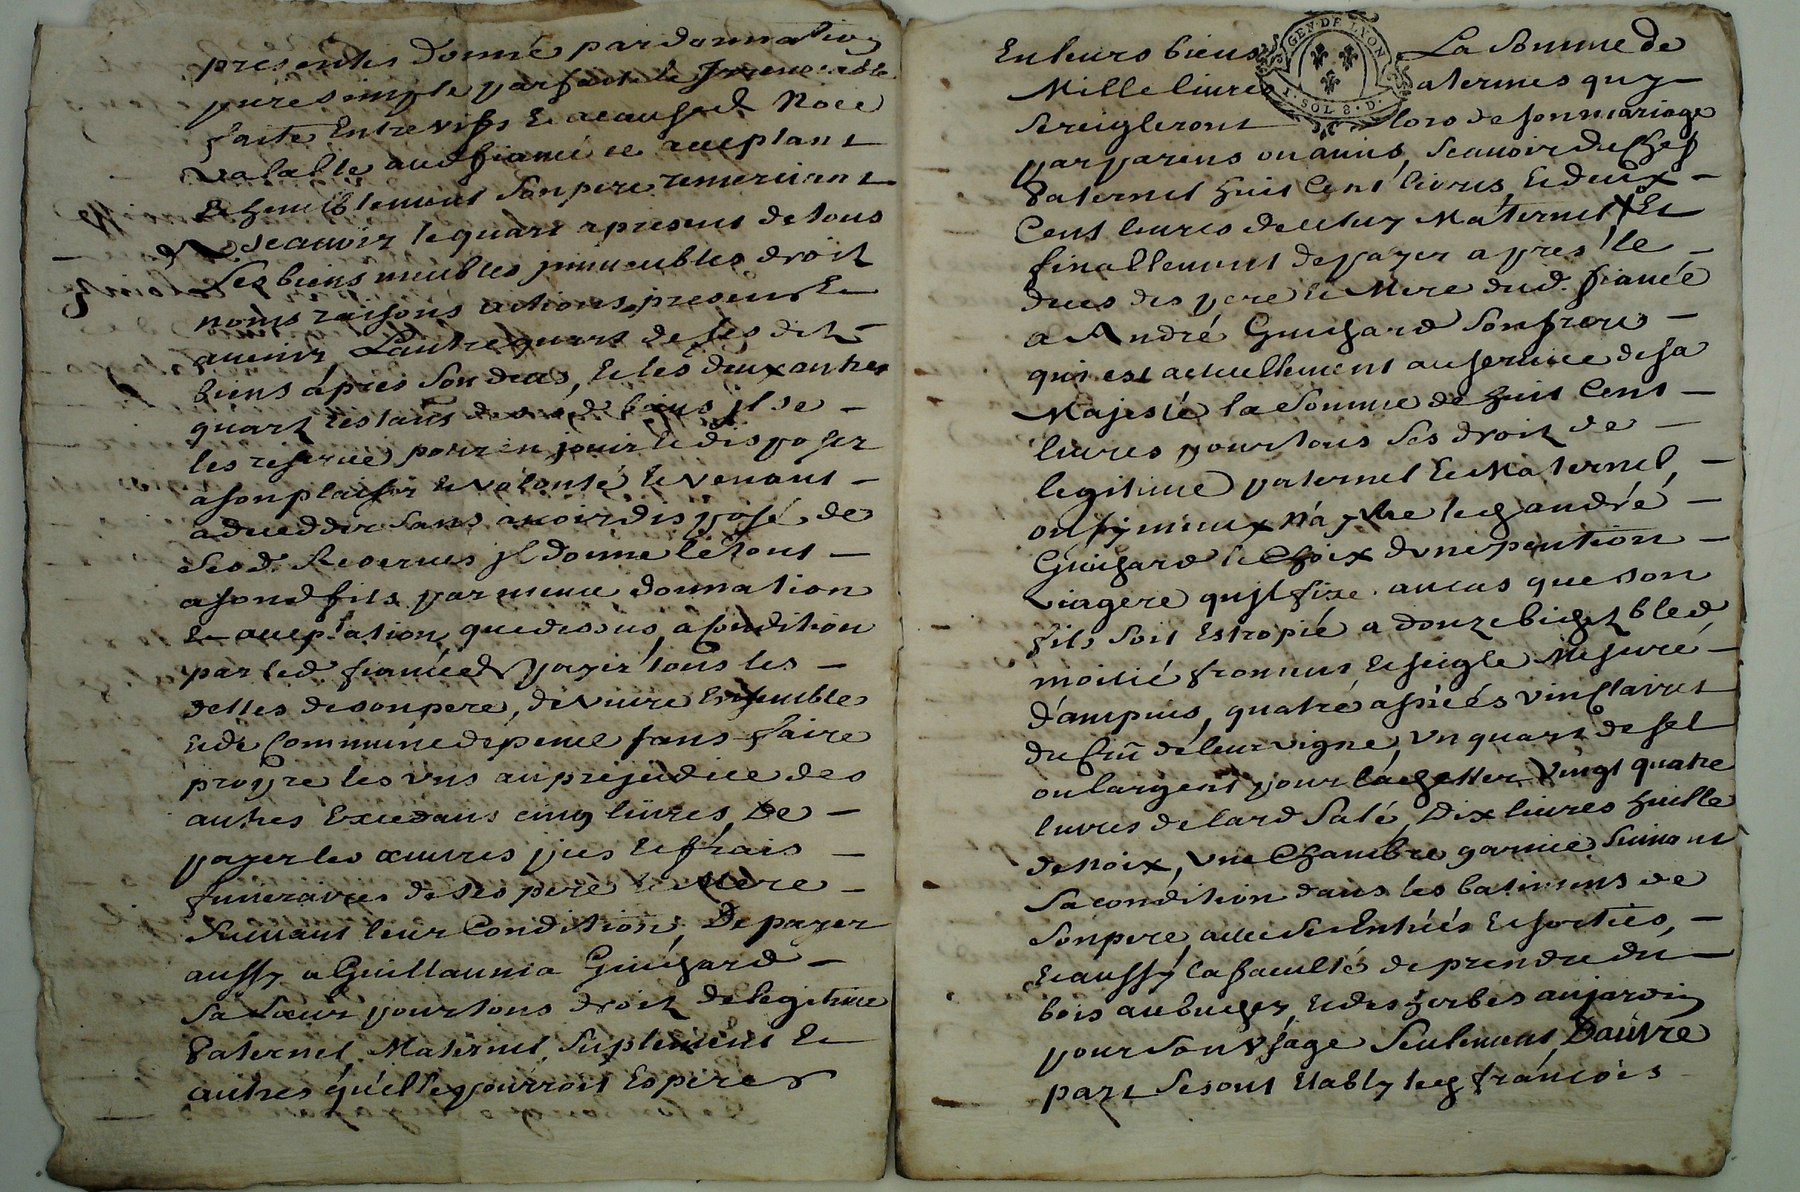 presentes donné par donnation
pure simple parfaite et Irrevocable
faite Entre vifs et a cause de Noce
valable aud fiancé ce acceptant
et humblement son pere remerciant
Scavoir le quart a present de tous
Ses biens meubles jmmeubles droit
noms raisons actions present Et
avenir L'autre quart de ses dit
biens apres son deces, et les deux autres
quart restans de ses d. biens jl se
les reserve pour en jouir et disposer
a son plaisir et volonté et venant
a deceder sans avoir disposé de
Ses d. Reserves jl donne le tout
a son d fils par meme donnation
Et acceptation que dessus, a Condition
par led. fiancé de payer tous les
dettes de son pere, de vivre Ensemble
et de Commune depence sans faire
propre les vns au prejudice des
autres Excedans cinq livres, De
payer les œuvres pies et frais
funeraires de ses pere et Mere
Suivant leur Condition; De payer
aussy a Guillauma Guichard
Sa Sœur pour tous droit de legitime
Paternel, Maternel, Suplement Et
autres qu'elle pourroit Esperer
En leurs biens La Somme de
GEN. DE LYON
I. SOL 8. D.
Mille livres a termes quy
Se reigleront lors de son mariage
par parens ou amis, Scavoir du Chef
Paternel huit Cent livres, et deux
Cent livres de celuy Maternel, Et
finallement de payer apres le
deces des pere et Mere dud. fiancé
a André Guichard Son frere
qui est actuellement au service de sa
Majesté la Somme de huit Cent
livres pour tous Ses droit de
legitime paternel et Maternel,
ou sy mieux n'ayme led andré
Guichard le Choix d'une pention
viagere qujl fixe au cas que son
fils soit Estropié a douze bichet bled
moitié froment et seigle Mesure
d'ampuis, quatre asnées vin Clairet
du Crû de leur vigne, vn quart de sel
ou largent pour lachetter, vingt quatre
livres de lard Salé, Dix livres huille
de noix, vne Chambre garnie Suivant
Sa condition dans les batimens de
Son pere, avec Ses Entrées et sorties,
et aussy la faculté de prendre du
bois au bucher, et des herbes au jardin
pour son vsage Seulement, D'autre
part Se sont Etably led françois